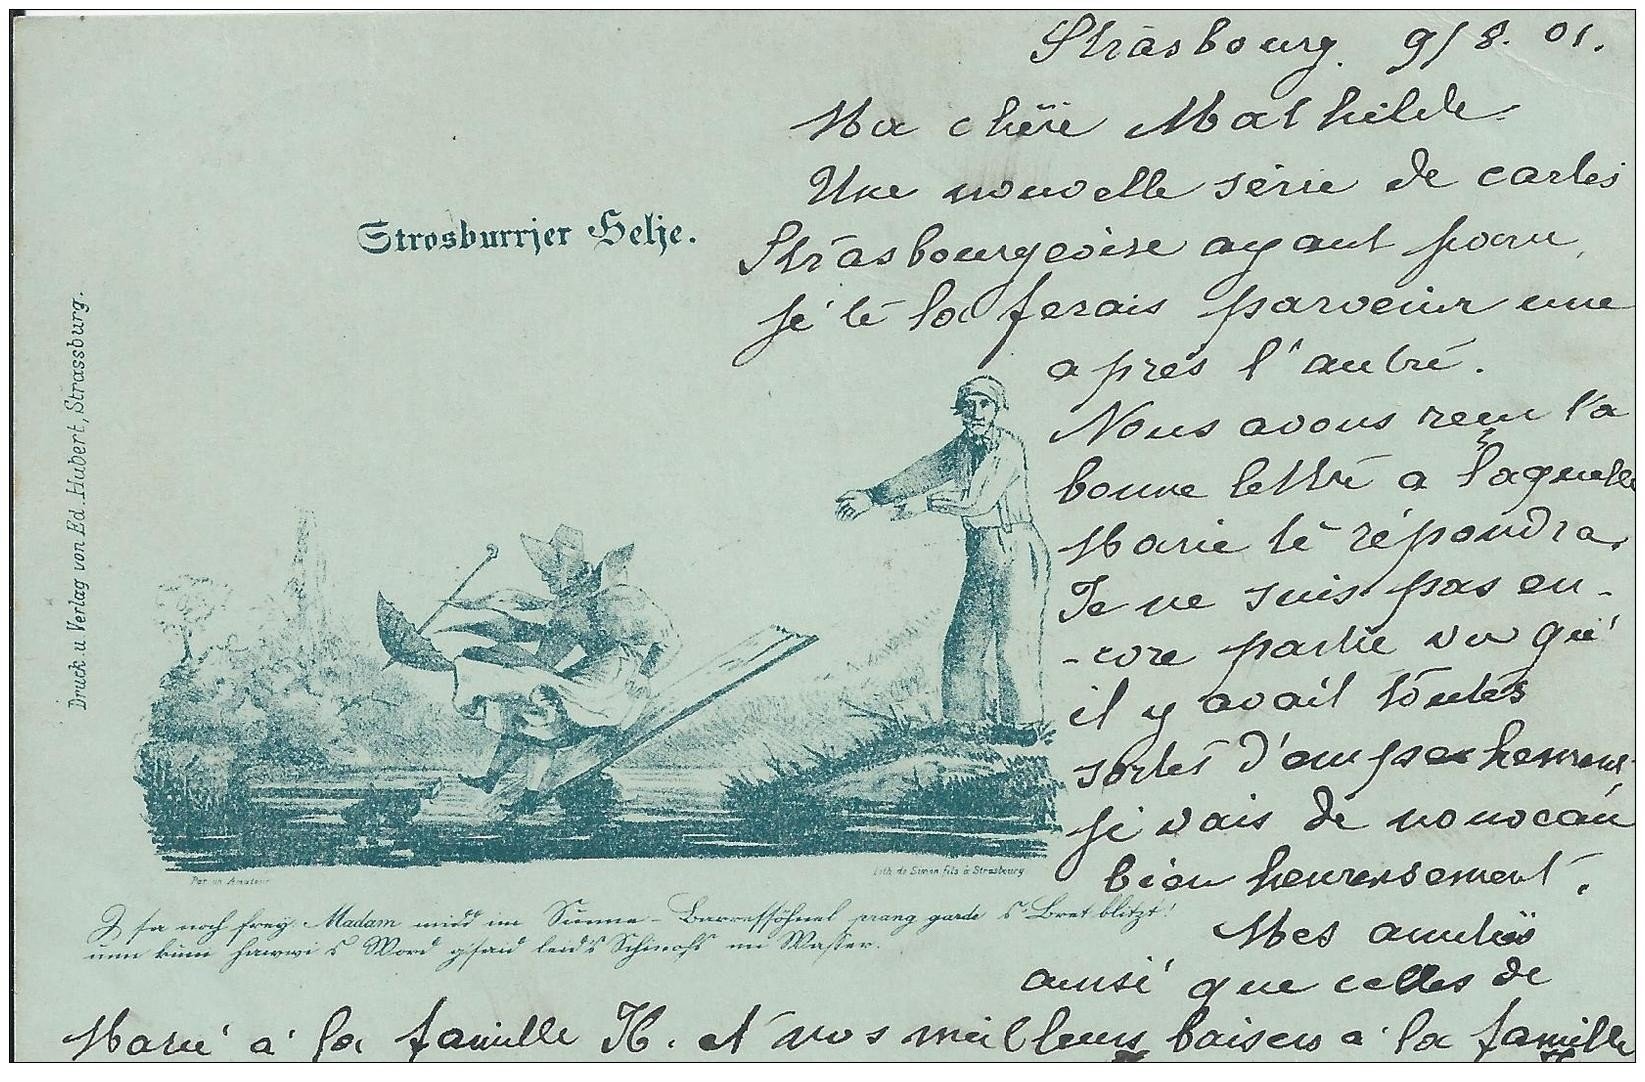 Strasbourg. 9/8. 01.
Ma chère Mathilde
Une nouvelle série de cartes
Strasbourgeoise ayant paru,
je te la ferais parvenir une
après l'autre.
Nous avons reçu ta
bonne lettre a laquelle
Marie te répondra.
Je ne suis pas en-
-core partie vu qu'
il y avait toutes
sortes d'em
je vais de nouveau
bien heureusement.
Mes amitiés
ainsi que celles de
Marie à la famille H. et nos meilleurs baisers à la famille
Strosburrjer Helje.
Druck u. Verlag von Ed. Hubert, Strassburg.
Par un Amateur
Lith. de Simon fils à Strasbourg
I sa noch frej Madam midd im Sunne- prang garde s' Bret blitzt!
unn kum hawwi s Word gsaid leid's im Wasser.